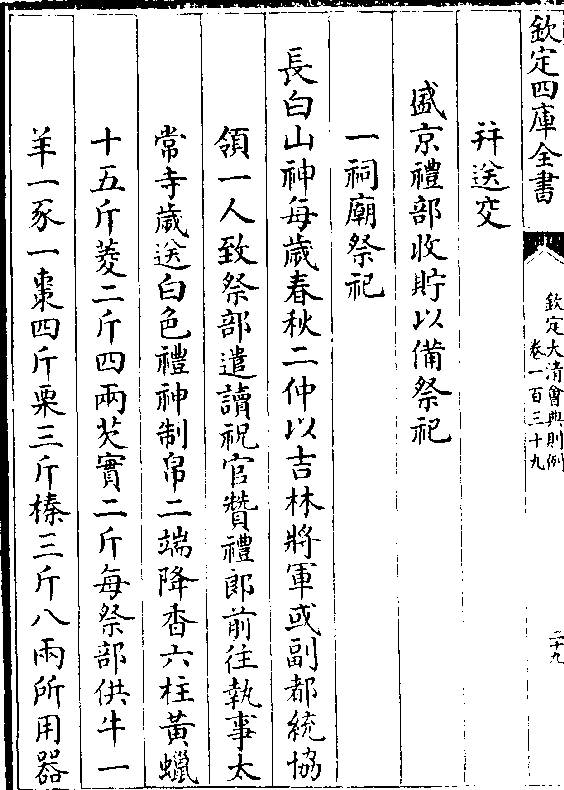 欽定四庫全書
欽定大清會典則例
卷一百三十九
二十九
并送交
盛京禮部收貯以備祭祀
一祠廟祭祀
長白山神每歲春秋二仲以吉林將軍或副都統協
領一人致祭部遣讀祝官贊禮郎前往執事太
常寺歲送白色禮神制帛二端降香六柱黃蠟
十五斤菱二斤四兩芡實二斤每祭部供牛一
羊一豕一棗四斤栗三斤榛三斤八兩所用器